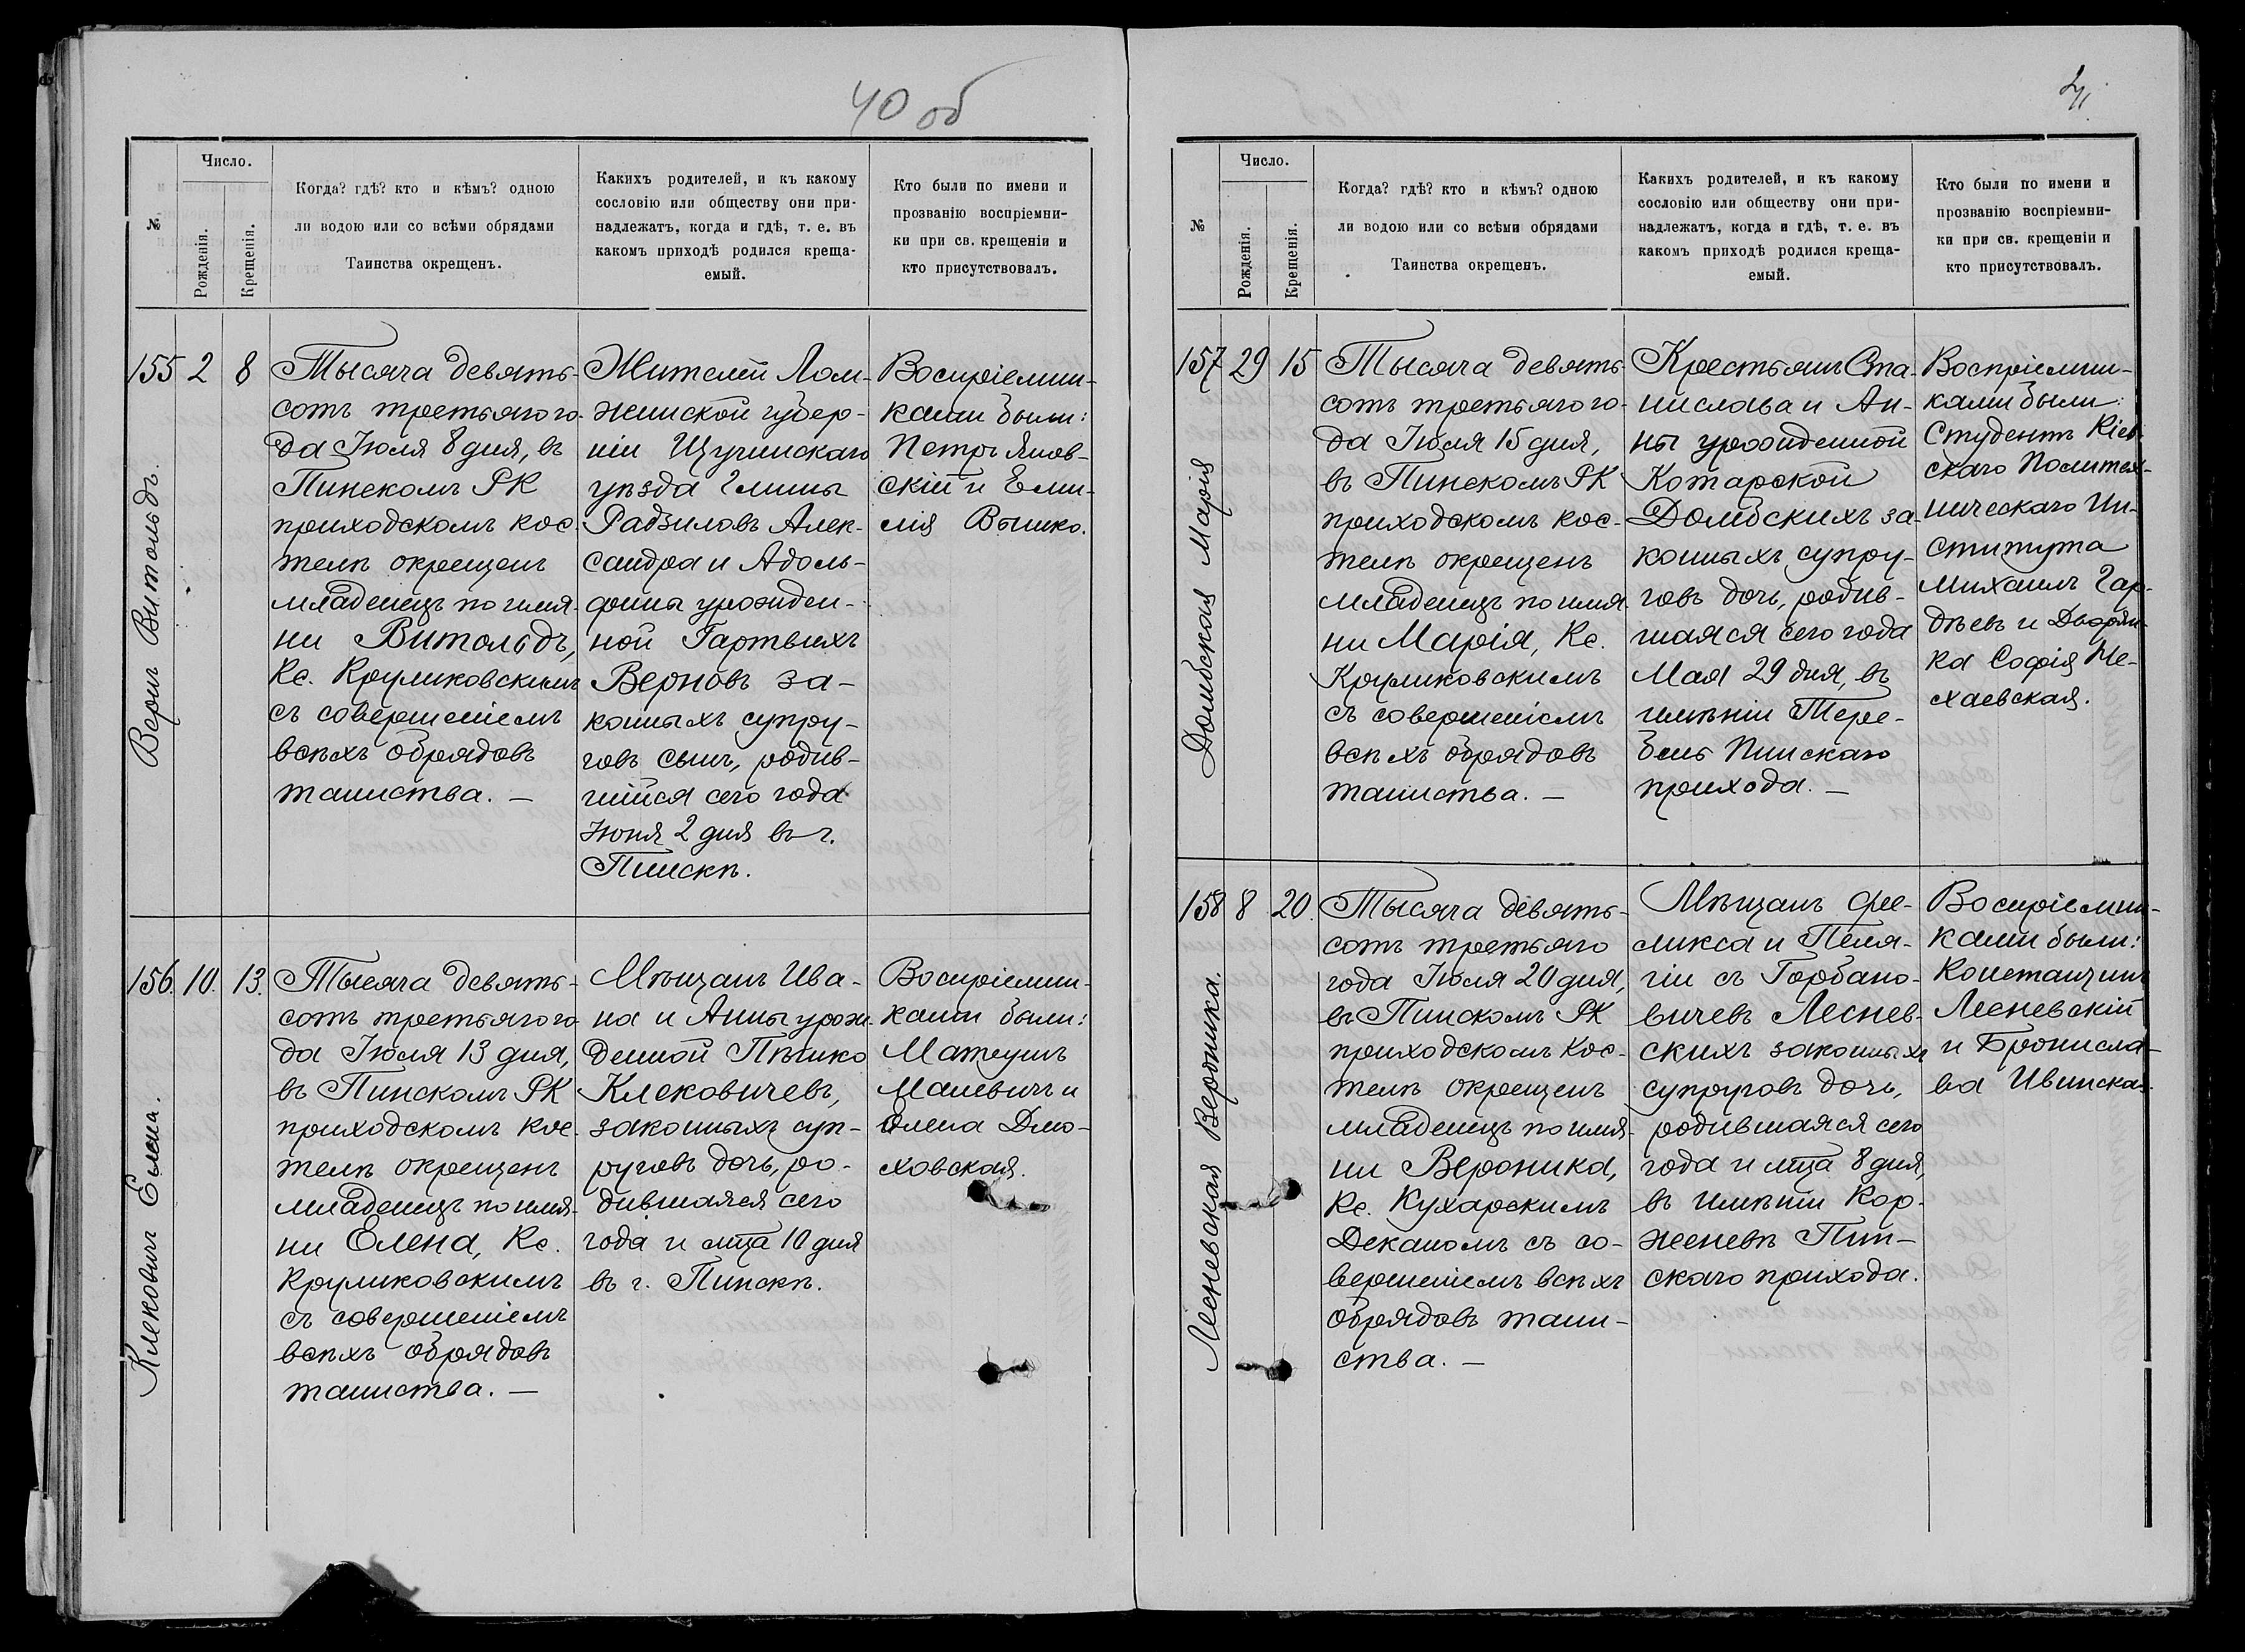 40 об
№
Число.
Рожденія.
Крещенія.
Когда? гдѣ? кто и кѣмъ? одною
ли водою или со всѣми обрядами
Таинства окрещенъ.
Какихъ родителей, и къ какому
сословію или обществу они при-
надлежатъ, когда и гдѣ, т. е. въ
какомъ приходѣ родился креща-
емый.
Кто были по имени и
прозванію воспріемни-
ки при св. крещеніи и
кто присутствовалъ.
155
Вернъ Витольдъ.
2
8
Тысяча девять-
сотъ третьяго го-
да Іюля 8 дня, въ
Пинскомъ РК
приходскомъ кос-
телѣ окрещенъ
младенецъ по имя-
ни Витольдъ,
Кс. Круликовскимъ
съ совершеніемъ
всѣхъ обрядовъ
таинства. —
Жителей Лом-
жинской губер-
ніи Щучинскаго
уѣзда гмины
Радзиловъ Алек-
сандра и Адоль-
фины урожден-
ной Гартвихъ
Верновъ за-
конныхъ супру-
говъ сынъ, родив-
шійся сего года
Іюня 2 дня въ г.
Пинскѣ.
Воспріемни-
ками были:
Петръ Янов-
скій и Еми-
лія Вышко.
156.
Клековичъ Елена.
10.
13.
Тысяча девять-
сотъ третьяго го-
да Іюля 13 дня,
въ Пинскомъ РК
приходскомъ кос-
телѣ окрещенъ
младенецъ по имя-
ни Елена, Кс.
Круликовскимъ
съ совершеніемъ
всѣхъ обрядовъ
таинства. —
Мѣщанъ Ива-
на и Анны урож-
денной Пѣшко
Клековичевъ,
законныхъ суп-
руговъ дочь, ро-
дившаяся сего
года и мца 10 дня
въ г. Пинскѣ.
Воспріемни-
ками были:
Матеушъ
Малевичъ и
Олена Дмо-
ховская.
41
№
Число.
Рожденія.
Крещенія.
Когда? гдѣ? кто и кѣмъ? одною
ли водою или со всѣми обрядами
Таинства окрещенъ.
Какихъ родителей, и къ какому
сословію или обществу они при-
надлежатъ, когда и гдѣ, т. е. въ
какомъ приходѣ родился креща-
емый.
Кто были по имени и
прозванію воспріемни-
ки при св. крещеніи и
кто присутствовалъ.
157
Домбская Марія
29
15
Тысяча девять-
сотъ третьяго го-
да Іюля 15 дня,
въ Пинскомъ РК
приходскомъ кос-
телѣ окрещенъ
младенецъ по имя-
ни Марія, Кс.
Круликовскимъ
съ совершеніемъ
всѣхъ обрядовъ
таинства. —
Крестьянъ Ста-
нислава и Ан-
ны урожденной
Котарской
Домбскихъ за-
конныхъ супру-
говъ дочь, родив-
шаяся сего года
Мая 29 дня, въ
имѣніи Тере-
бень Пинскаго
прихода. —
Воспріемни-
ками были:
Студентъ Кіев-
скаго Политех-
ническаго Ин-
ститута
Михаилъ Гор-
дѣевъ и Дворян-
ка Софія Не-
хаевская.
158
Лесневская Вероника.
8
20.
Тысяча девять-
сотъ третьяго
года Іюля 20 дня,
въ Пинскомъ РК
приходскомъ кос-
телѣ окрещенъ
младенецъ по имя-
ни Вероника,
Кс. Кухарскимъ
Деканомъ съ со-
вершеніемъ всѣхъ
обрядовъ таин-
ства. —
Мѣщанъ Фе-
ликса и Пеля-
гіи съ Горбано-
вичевъ Леснев-
скихъ законныхъ
супруговъ дочь,
родившаяся сего
года и мца 8 дня,
въ имѣніи Кор-
женевѣ Пин-
скаго прихода.
Воспріемни-
ками были:
Константинъ
Лесневскій
и Бронисла-
ва Ивинская.